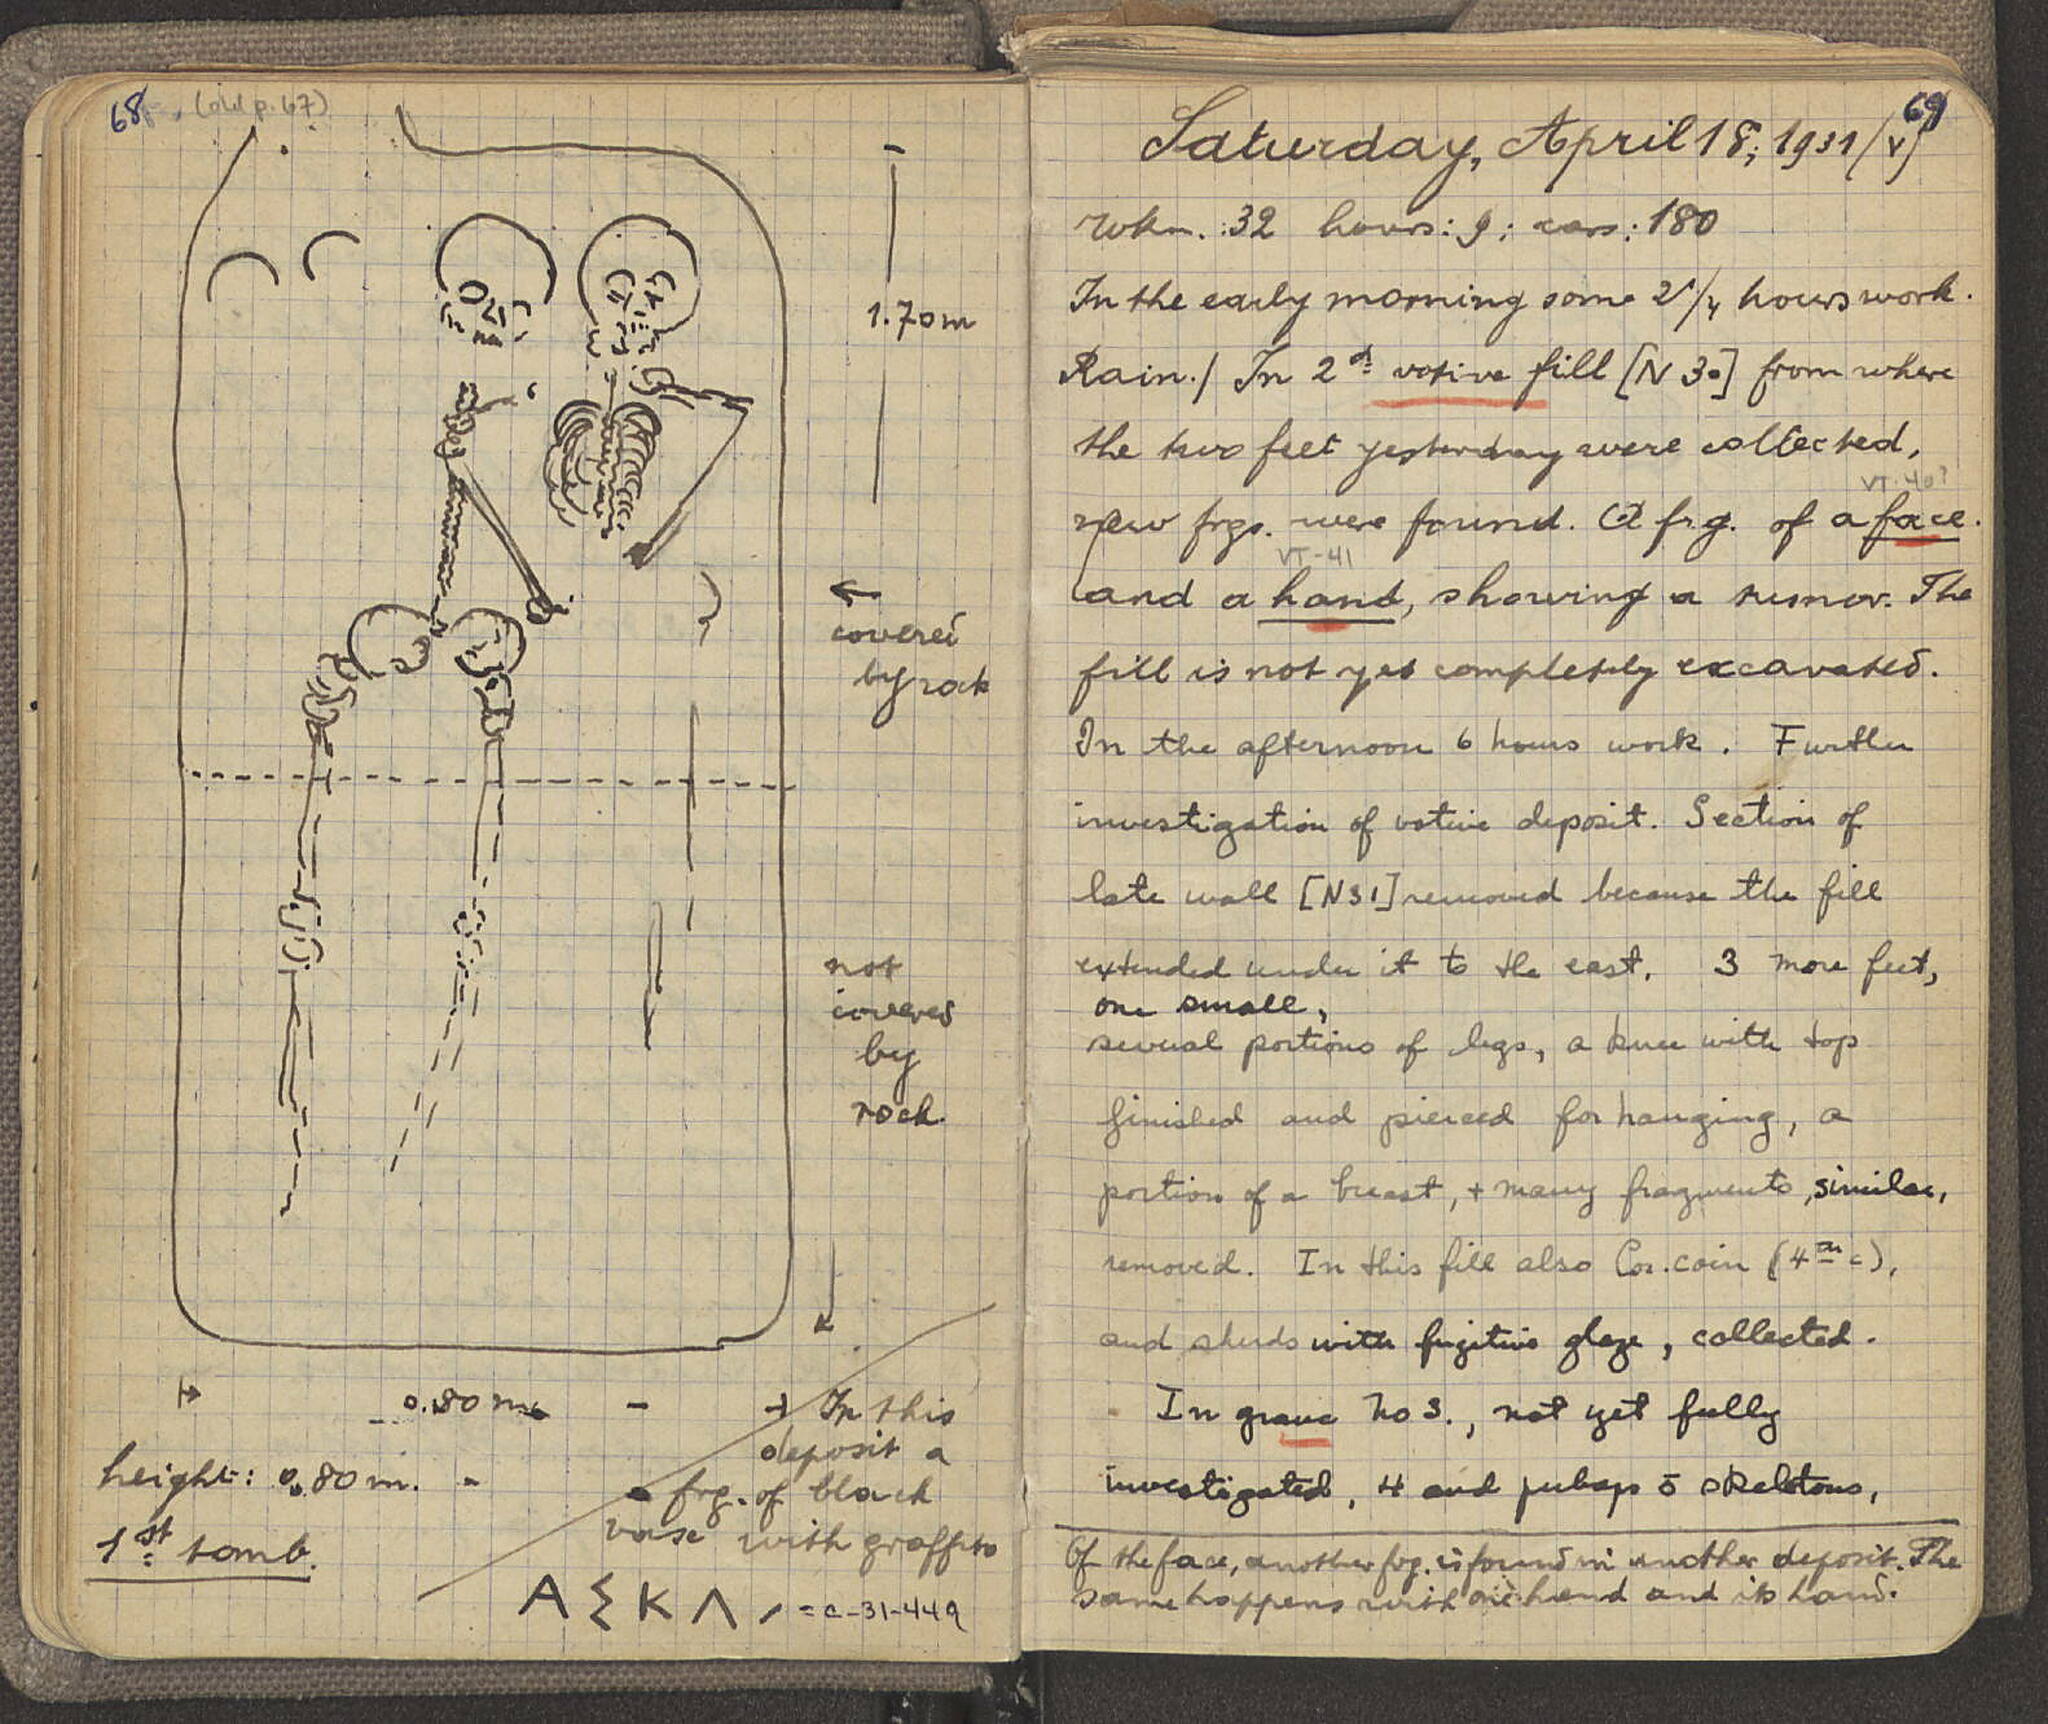 68 (old p. 67)
1.70m
←
covered
by rock
not
covered
by
rock.
0.80 m.
height: 0.80 m. -
1st tomb.
In this
deposit a
frg. of black
vase with graffito
Α Σ Κ Λ = C-31-449
69
Saturday, April 18; 1931 (V)
Wkm. : 32 hours: 9; cars: 180
In the early morning some 2 1/4 hours work.
Rain./ In 2d votive fill [N 30] from where
the two feet yesterday were collected,
VT-40?
new frgs. were found. A frg. of a face.
VT-41
and a hand, showing a tumor. The
fill is not yet completely excavated.
In the afternoon 6 hours work. Further
investigation of votive deposit. Section of
late wall [N31] removed because the fill
extended under it to the east. 3 more feet,
one small,
several portions of legs, a knee with top
finished and pierced for hanging, a
portion of a breast, + many fragments, similar,
removed. In this fill also Cor. coin (4th c),
and sherds with fugitive glaze, collected.
In grave No 3., not yet fully
investigated, 4 and perhaps 5 skeletons,
Of the face, another frg. is found in another deposit. The
same happens with hand and its hand.